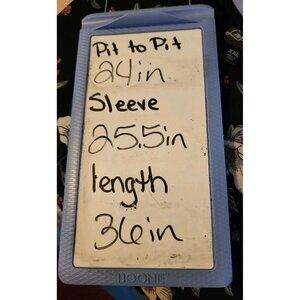 Pit to Pit
24in
Sleeve
25.5in
length
36in
BOONE
XXL